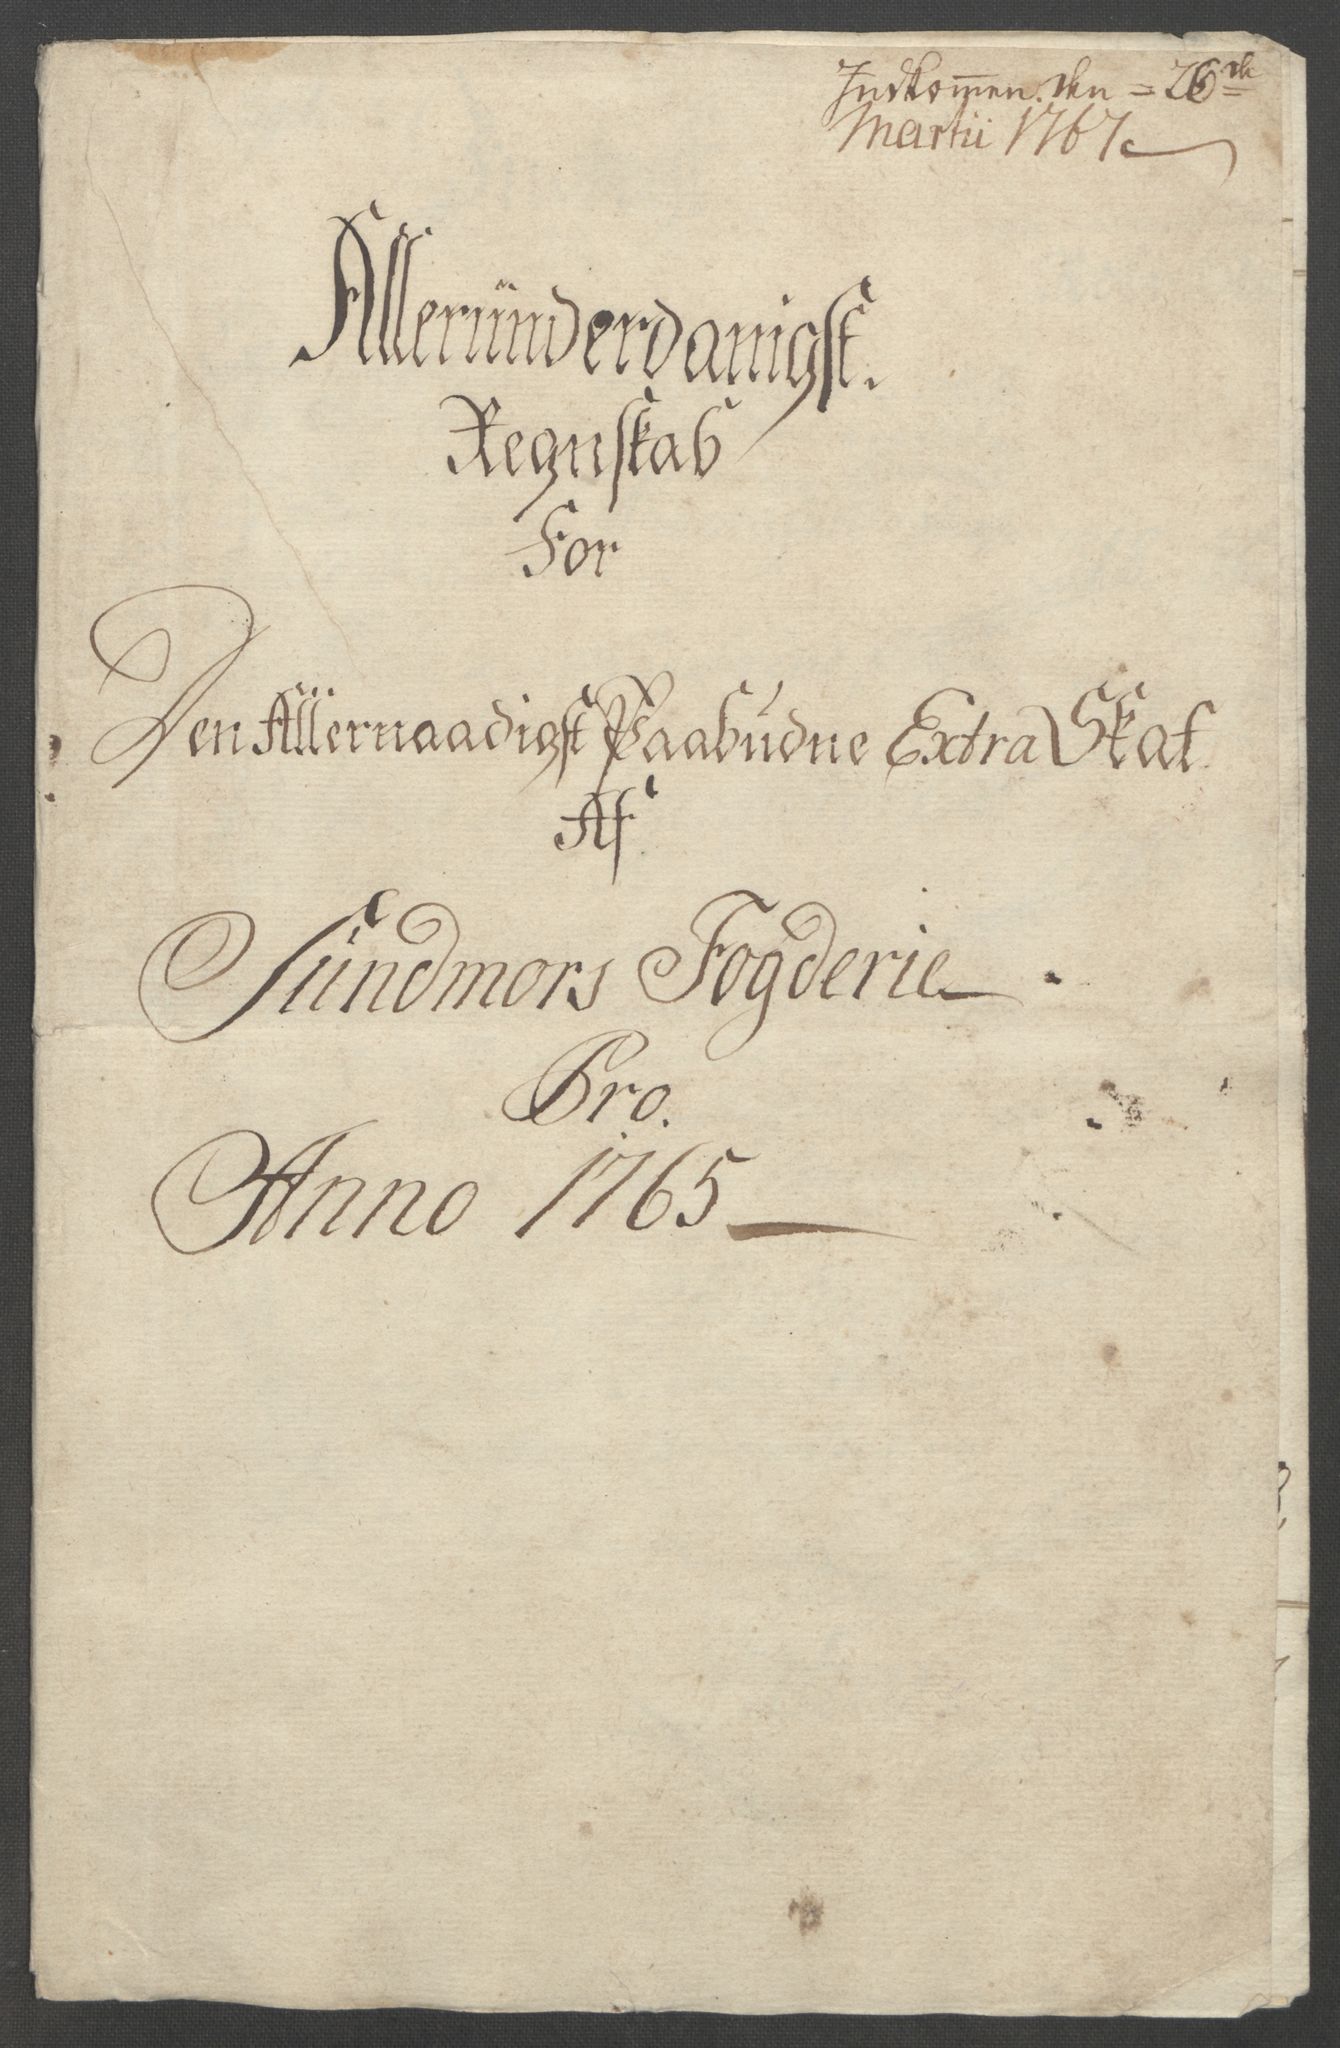 Indkom̄en. den = 26de
Martii 1767.
Alleründerdanigst.
Regnskab
For
Den Allernaadigst Paabudne Extra Skat
Af
Sündmørs Fogderie
Pro.
Anno 1765